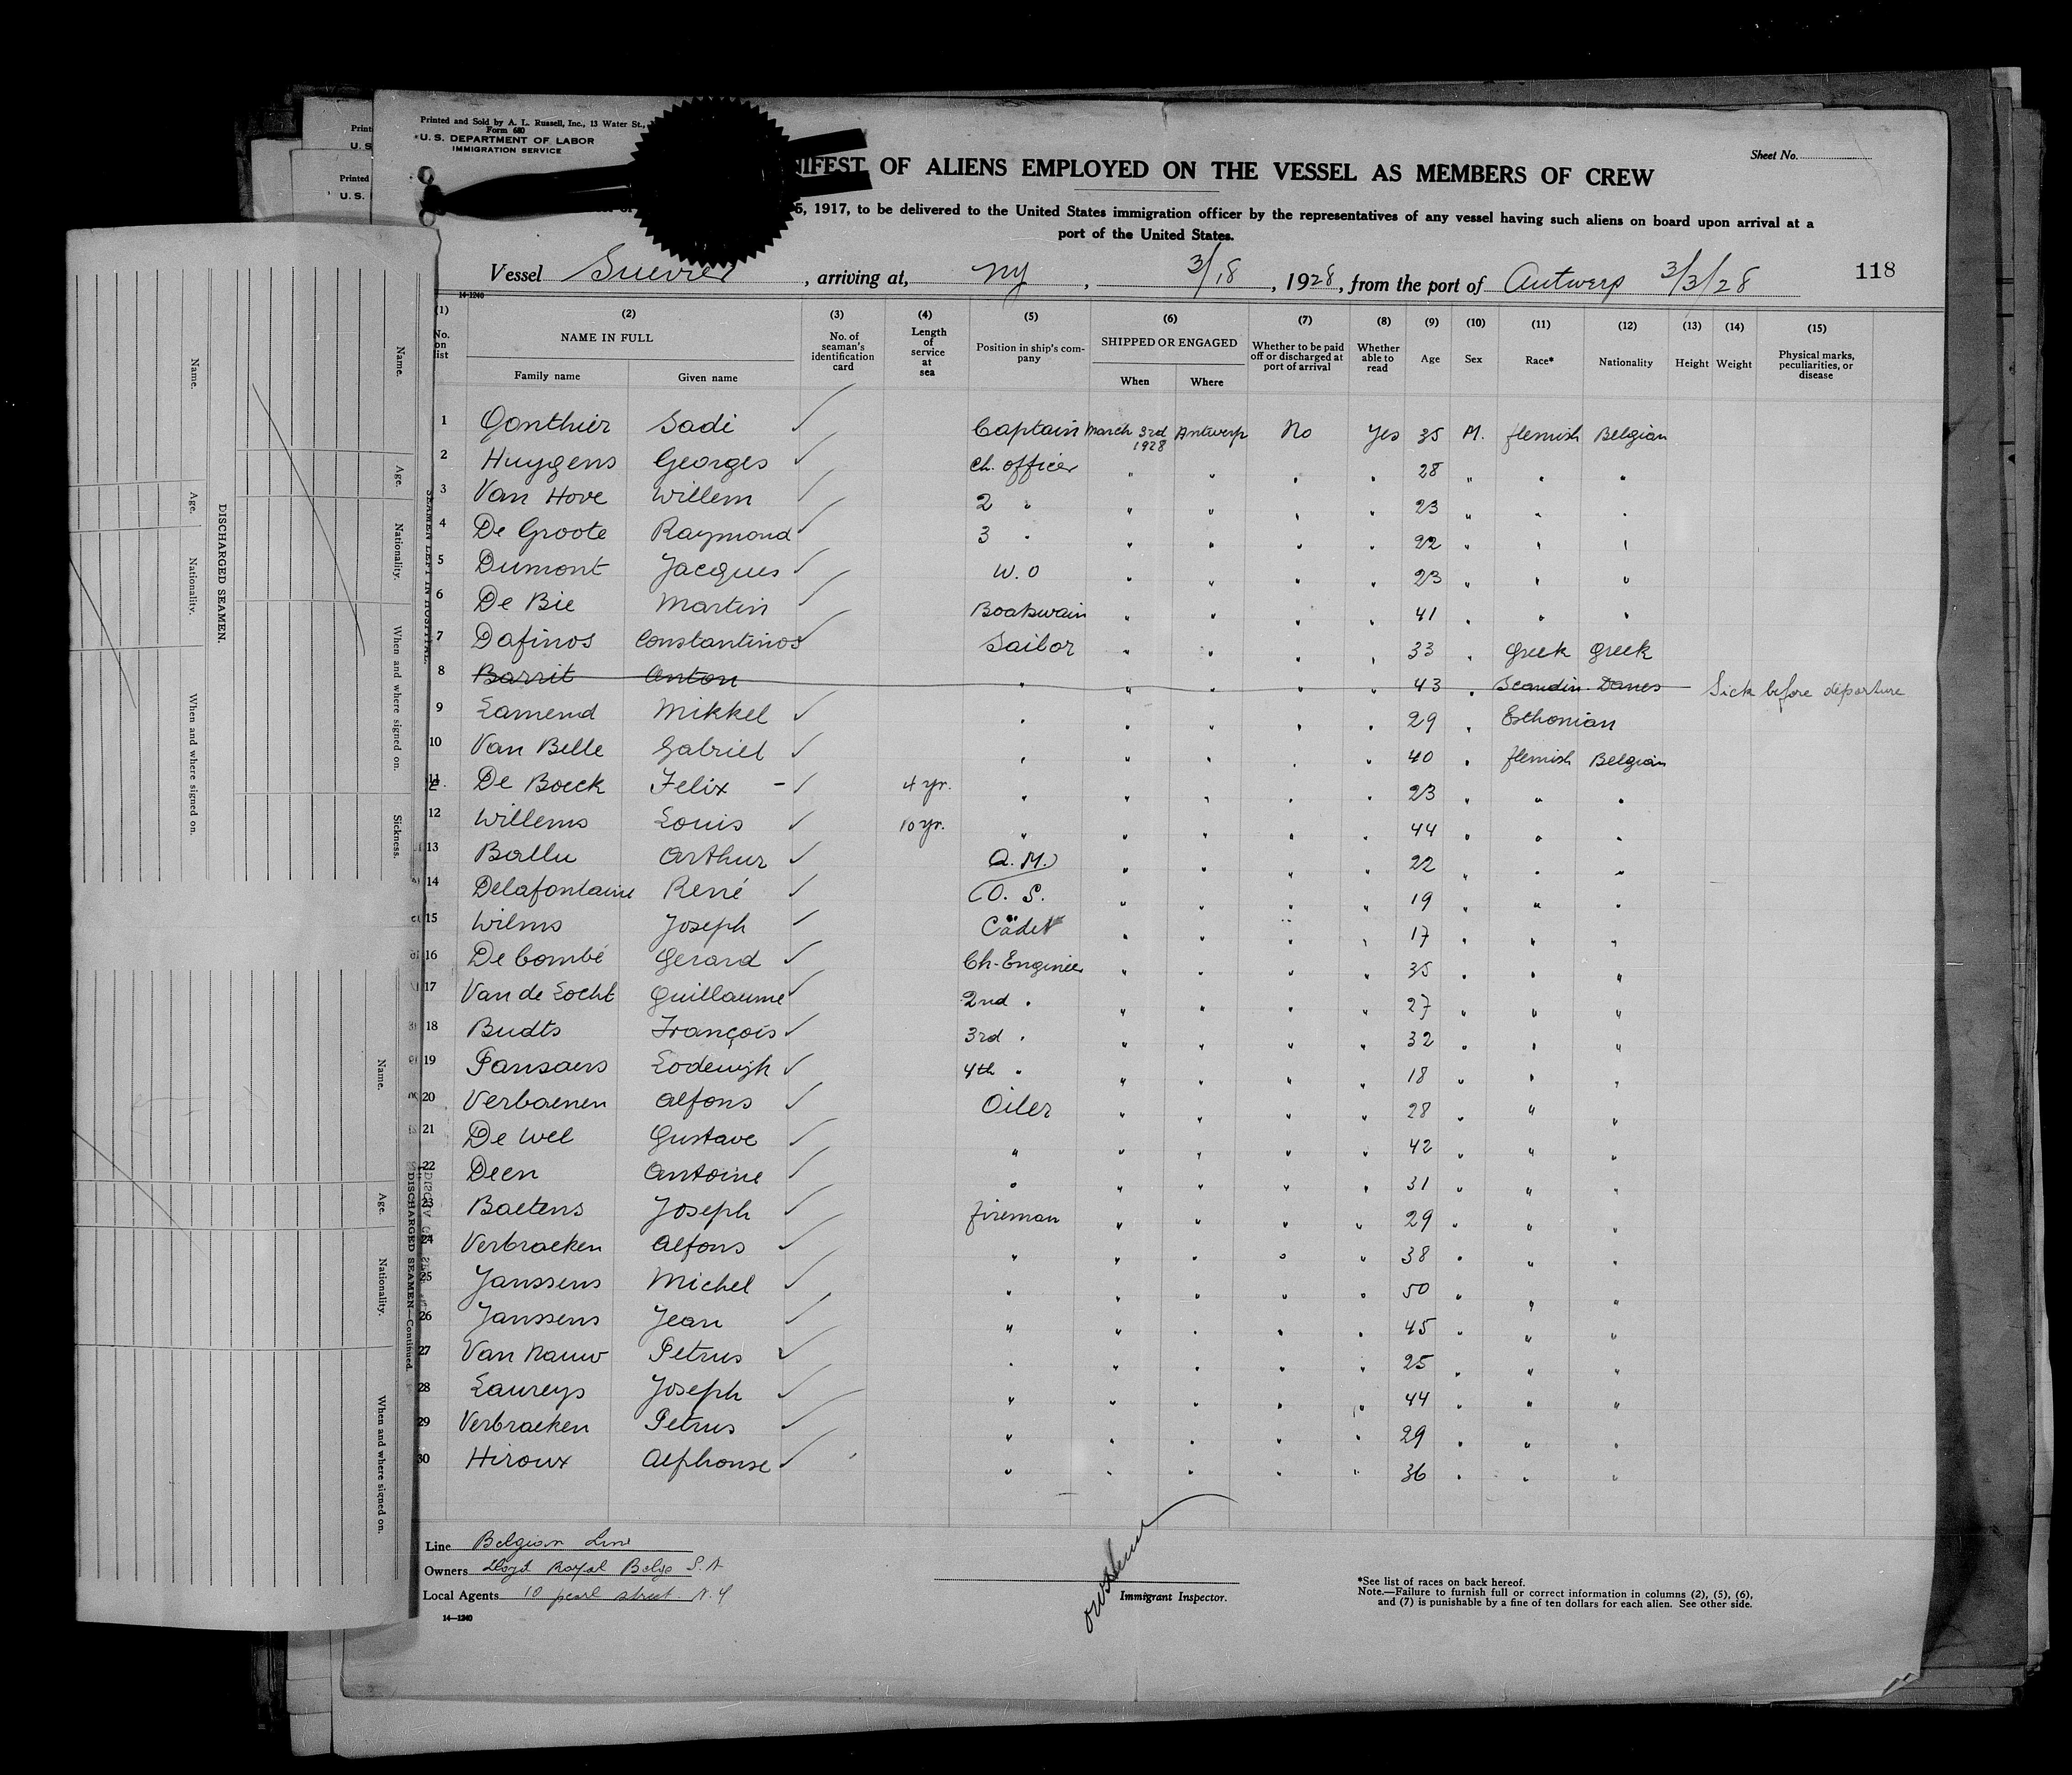 Printed and Sold by A. L. Russell, Inc., 13 Water St.,
Form 680
U. S. DEPARTMENT OF LABOR
IMMIGRATION SERVICE
Sheet No.
NIFEST OF ALIENS EMPLOYED ON THE VESSEL AS MEMBERS OF CREW
5, 1917, to be delivered to the United States immigration officer by the representatives of any vessel having such aliens on board upon arrival at a
port of the United States.
Vessel Suevier, arriving at, NY, 3/18, 1928, from the port of Antwerp 3/3/28
118
14-1240
(1) No. on list (2) NAME IN FULL Family name Given name (3) No. of seaman's identification card (4) Length of service at sea (5) Position in ship's company (6) SHIPPED OR ENGAGED When Where (7) Whether to be paid off or discharged at port of arrival (8) Whether able to read (9) Age (10) Sex (11) Race* (12) Nationality (13) Height (14) Weight (15) Physical marks, peculiarities, or disease
1 Gonthier Sadi ✓ Captain March 3rd 1928 Antwerp No Yes 35 M. flemish Belgian
2 Huygens Georges ✓ Ch. officer " " " " 28 " " "
3 Van Hove Willem ✓ 2 " " " " " 23 " " "
4 De Groote Raymond ✓ 3 " " " " " 22 " " "
5 Dumont Jacques ✓ W. O " " " " 23 " " "
6 De Bie Martin ✓ Boatswain " " " " 41 " " "
7 Dafinos Constantinos ✓ Sailor " " " " 33 " Greek Greek
8 Barrit Anton " " " " " 43 " Scandin. Danes Sick before departure
9 Lamend Mikkel ✓ " " " " " 29 " Esthonian
10 Van Belle Gabriel ✓ " " " " " 40 " flemish Belgian
11 De Boeck Felix - ✓ 4 yr. " " " " " 23 " " "
12 Willems Louis ✓ 10 yr. " " " " " 44 " " "
13 Ballu Arthur ✓ Q. M. " " " " 22 " " "
14 Delafontaine René ✓ O. S. " " " " 19 " " "
15 Wilms Joseph ✓ Cadet " " " " 17 " " "
16 Decombé Gerard ✓ Ch-Engineer " " " " 35 " " "
17 Van de Locht Guillaume ✓ 2nd " " " " " 27 " " "
18 Budts François ✓ 3rd " " " " " 32 " " "
19 Pansaers Lodewijk ✓ 4th " " " " " 18 " " "
20 Verbaenen Alfons ✓ Oiler " " " " 28 " " "
21 De Wel Gustave ✓ " " " " " 42 " " "
22 Deen Antoine ✓ " " " " " 31 " " "
23 Baetens Joseph ✓ fireman " " " " 29 " " "
24 Verbraeken Alfons ✓ " " " " " 38 " " "
25 Janssens Michel ✓ " " " " " 50 " " "
26 Janssens Jean ✓ " " " " " 45 " " "
27 Van Nauw Petrus ✓ " " " " " 25 " " "
28 Laureys Joseph ✓ " " " " " 44 " " "
29 Verbraeken Petrus ✓ " " " " " 29 " " "
30 Hiroux Alphonse ✓ " " " " " 36 " " "
Line Belgian Line
Owners Lloyd Royal Belge S. A
Local Agents 10 pearl street. N. Y
14—1240
Immigrant Inspector.
*See list of races on back hereof.
Note.—Failure to furnish full or correct information in columns (2), (5), (6),
and (7) is punishable by a fine of ten dollars for each alien. See other side.
DISCHARGED SEAMEN.
Name.
Age.
Nationality.
When and where signed on.
SEAMEN LEFT IN HOSPITAL.
Name.
Age.
Nationality.
When and where signed on.
Sickness.
DISCHARGED SEAMEN—Continued.
Name.
Age.
Nationality.
When and where signed on.